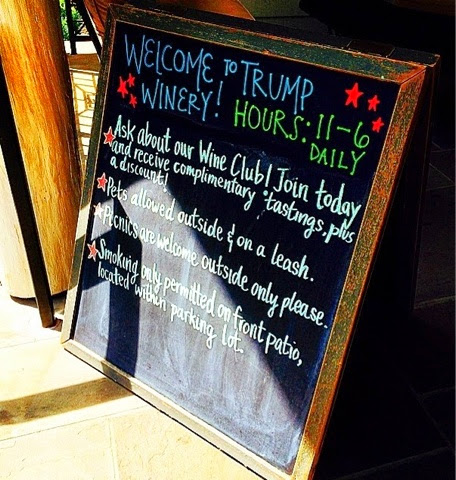 WELCOME TO TRUMP
WINERY! HOURS: 11-6
DAILY
Ask about our Wine Club! Join today
and receive complimentary tastings, plus
a discount!
Pets allowed outside & on a leash.
Picnics are welcome outside only please.
Smoking only permitted on front patio,
located within parking lot.